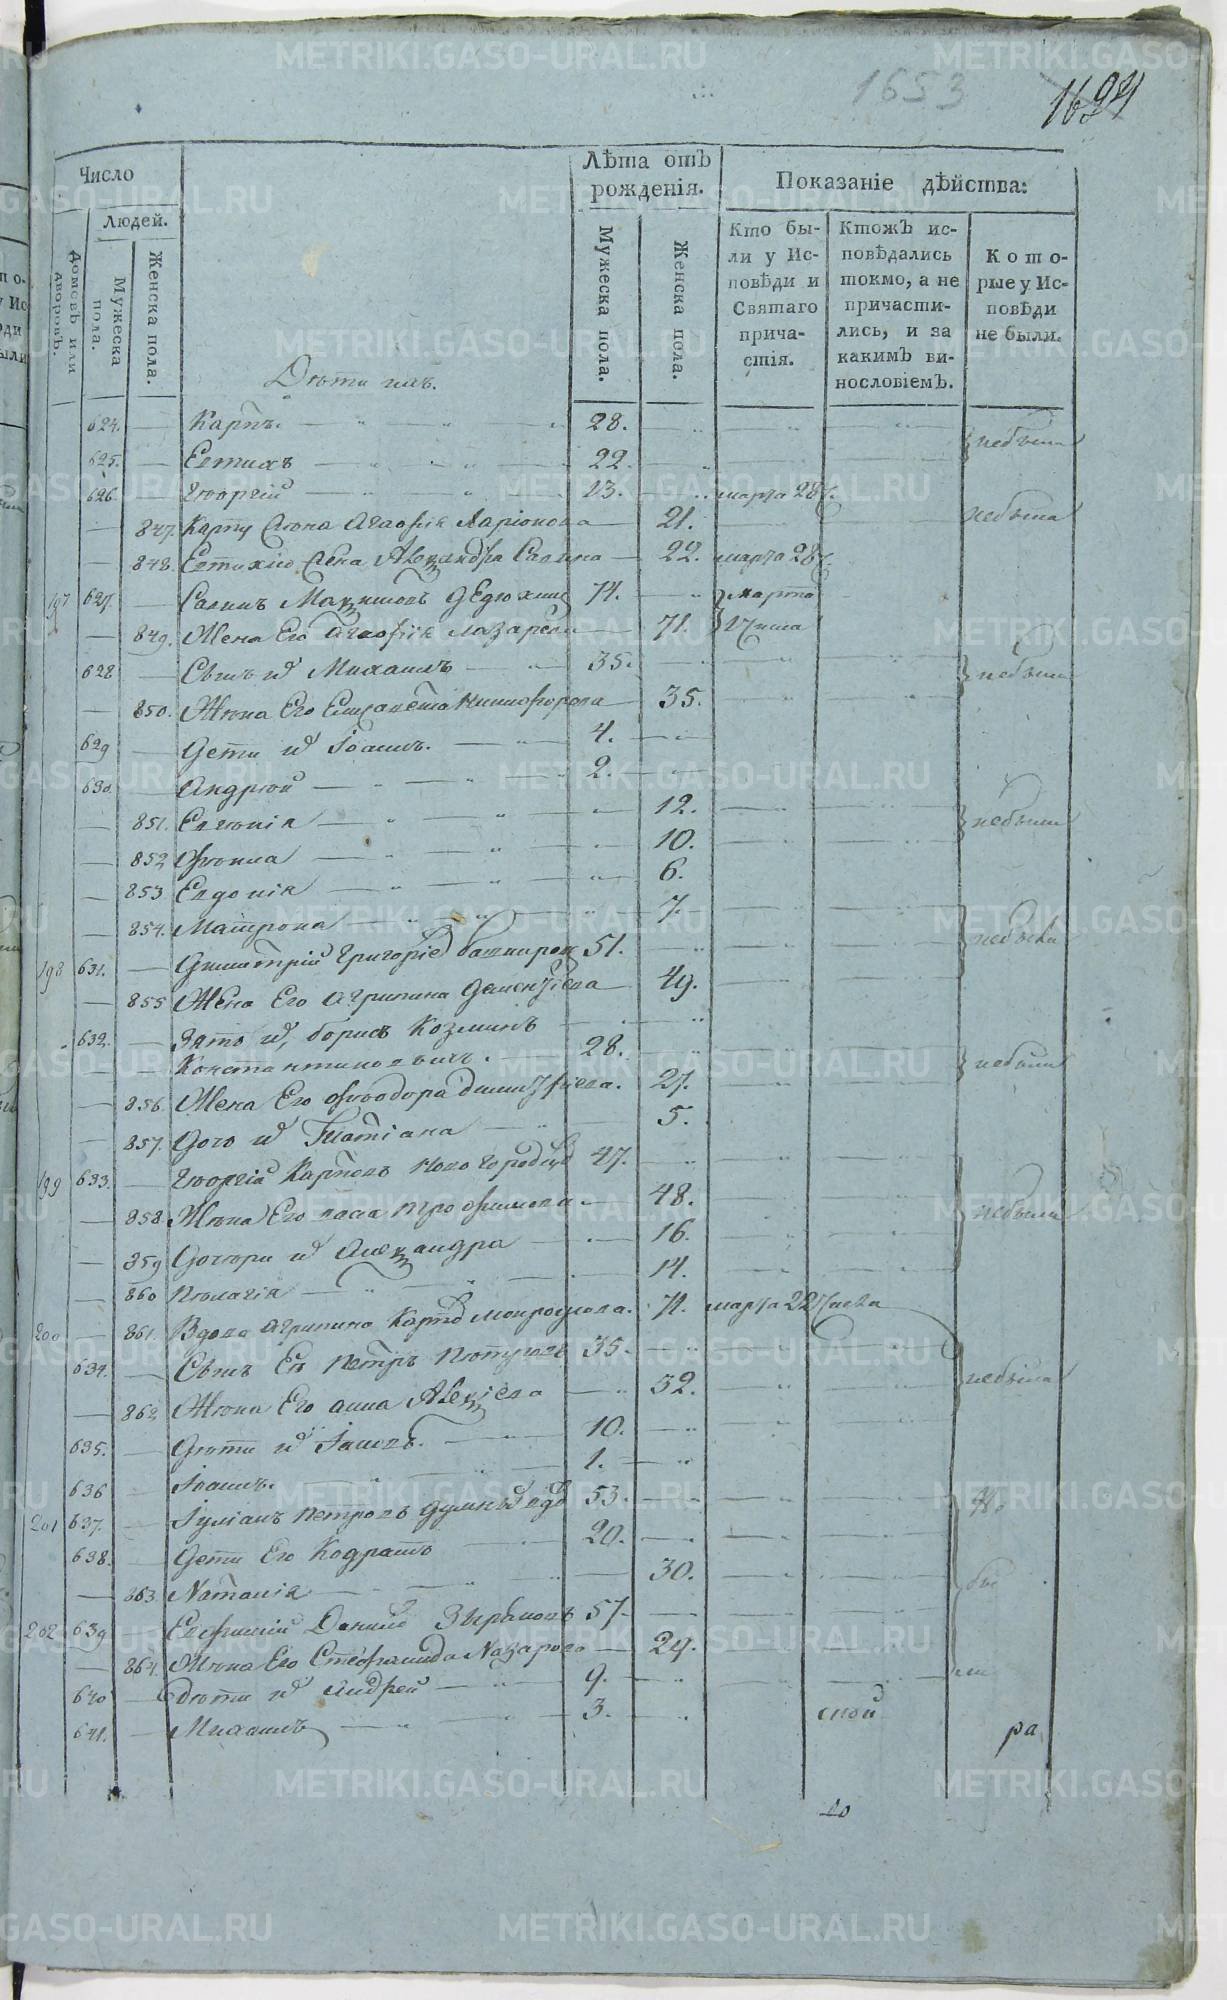 1653
1694
Число
Лѣта отъ рожденія.
Показаніе дѣйства:
Людей.
Домовъ или дворовъ.
Мужеска пола.
Женска пола.
Мужеска пола.
Женска пола.
Кто были у Исповѣди и Святаго причастія.
Ктожъ исповѣдались токмо, а не причастились, и за какимъ винословіемъ.
Которые у Исповѣди не были.
Дѣти ихъ.
624. Карпъ. 28.
небыли
625. Евтихъ 22.
626. Георгій 13. марта 28
847. Карпу Жена Агафія Ларіонова 21.
небыла
848. Евтихію Жена Александра Савина 22. марта 28
197 627. Савинъ Максимовъ 74. марта
849. Жена Его Агафія Лазарева 71. 17 числа
628 Сынъ их Михаилъ 35.
небыли
850. Жена Его Елисавета Никифорова 35.
629 Дети их Іоаннъ. 4.
630. Андрей 2.
851. Евгенія 12.
небыли
852 Фекла 10.
853 Евдокія 6.
854. Матрона 7.
небыли
198 631. Димитрій Григорьев Башкиров 51.
855 Жена Его Агрипина Дементіева 49.
632. Зять их, борисъ Козминъ
Константиновыхъ. 28.
небыли
856. Жена Его Феодора Димитріева. 27.
857. Дочь их Татіана 5.
199 633. Георгій Карповъ Новогородцов 47.
858. Жена Его васса трофимова 48.
небыли
859 Дочери их Александра 16.
860 Пелагія 14.
200 861. Вдова Агрипина Карпова Мокроусова. 71. марта 22 числа
634. Сынъ Ея Петръ Петровъ 35.
862 Жена Его Анна Алексіева 32.
небыли
635. Дѣти их Іаковъ. 10.
636 Іоаннъ. 1.
201 637. Іуліанъ Петровъ 53.
не
638. Дети Его Кодратъ 20.
863. Наталія 30.
бы
202 639. Евфимій Данилов Зыряновъ 57
864. Жена Его Стефанида Назарова 29.
ли
640 Дѣти их Андрей 9.
641. Михаилъ 3.
ра